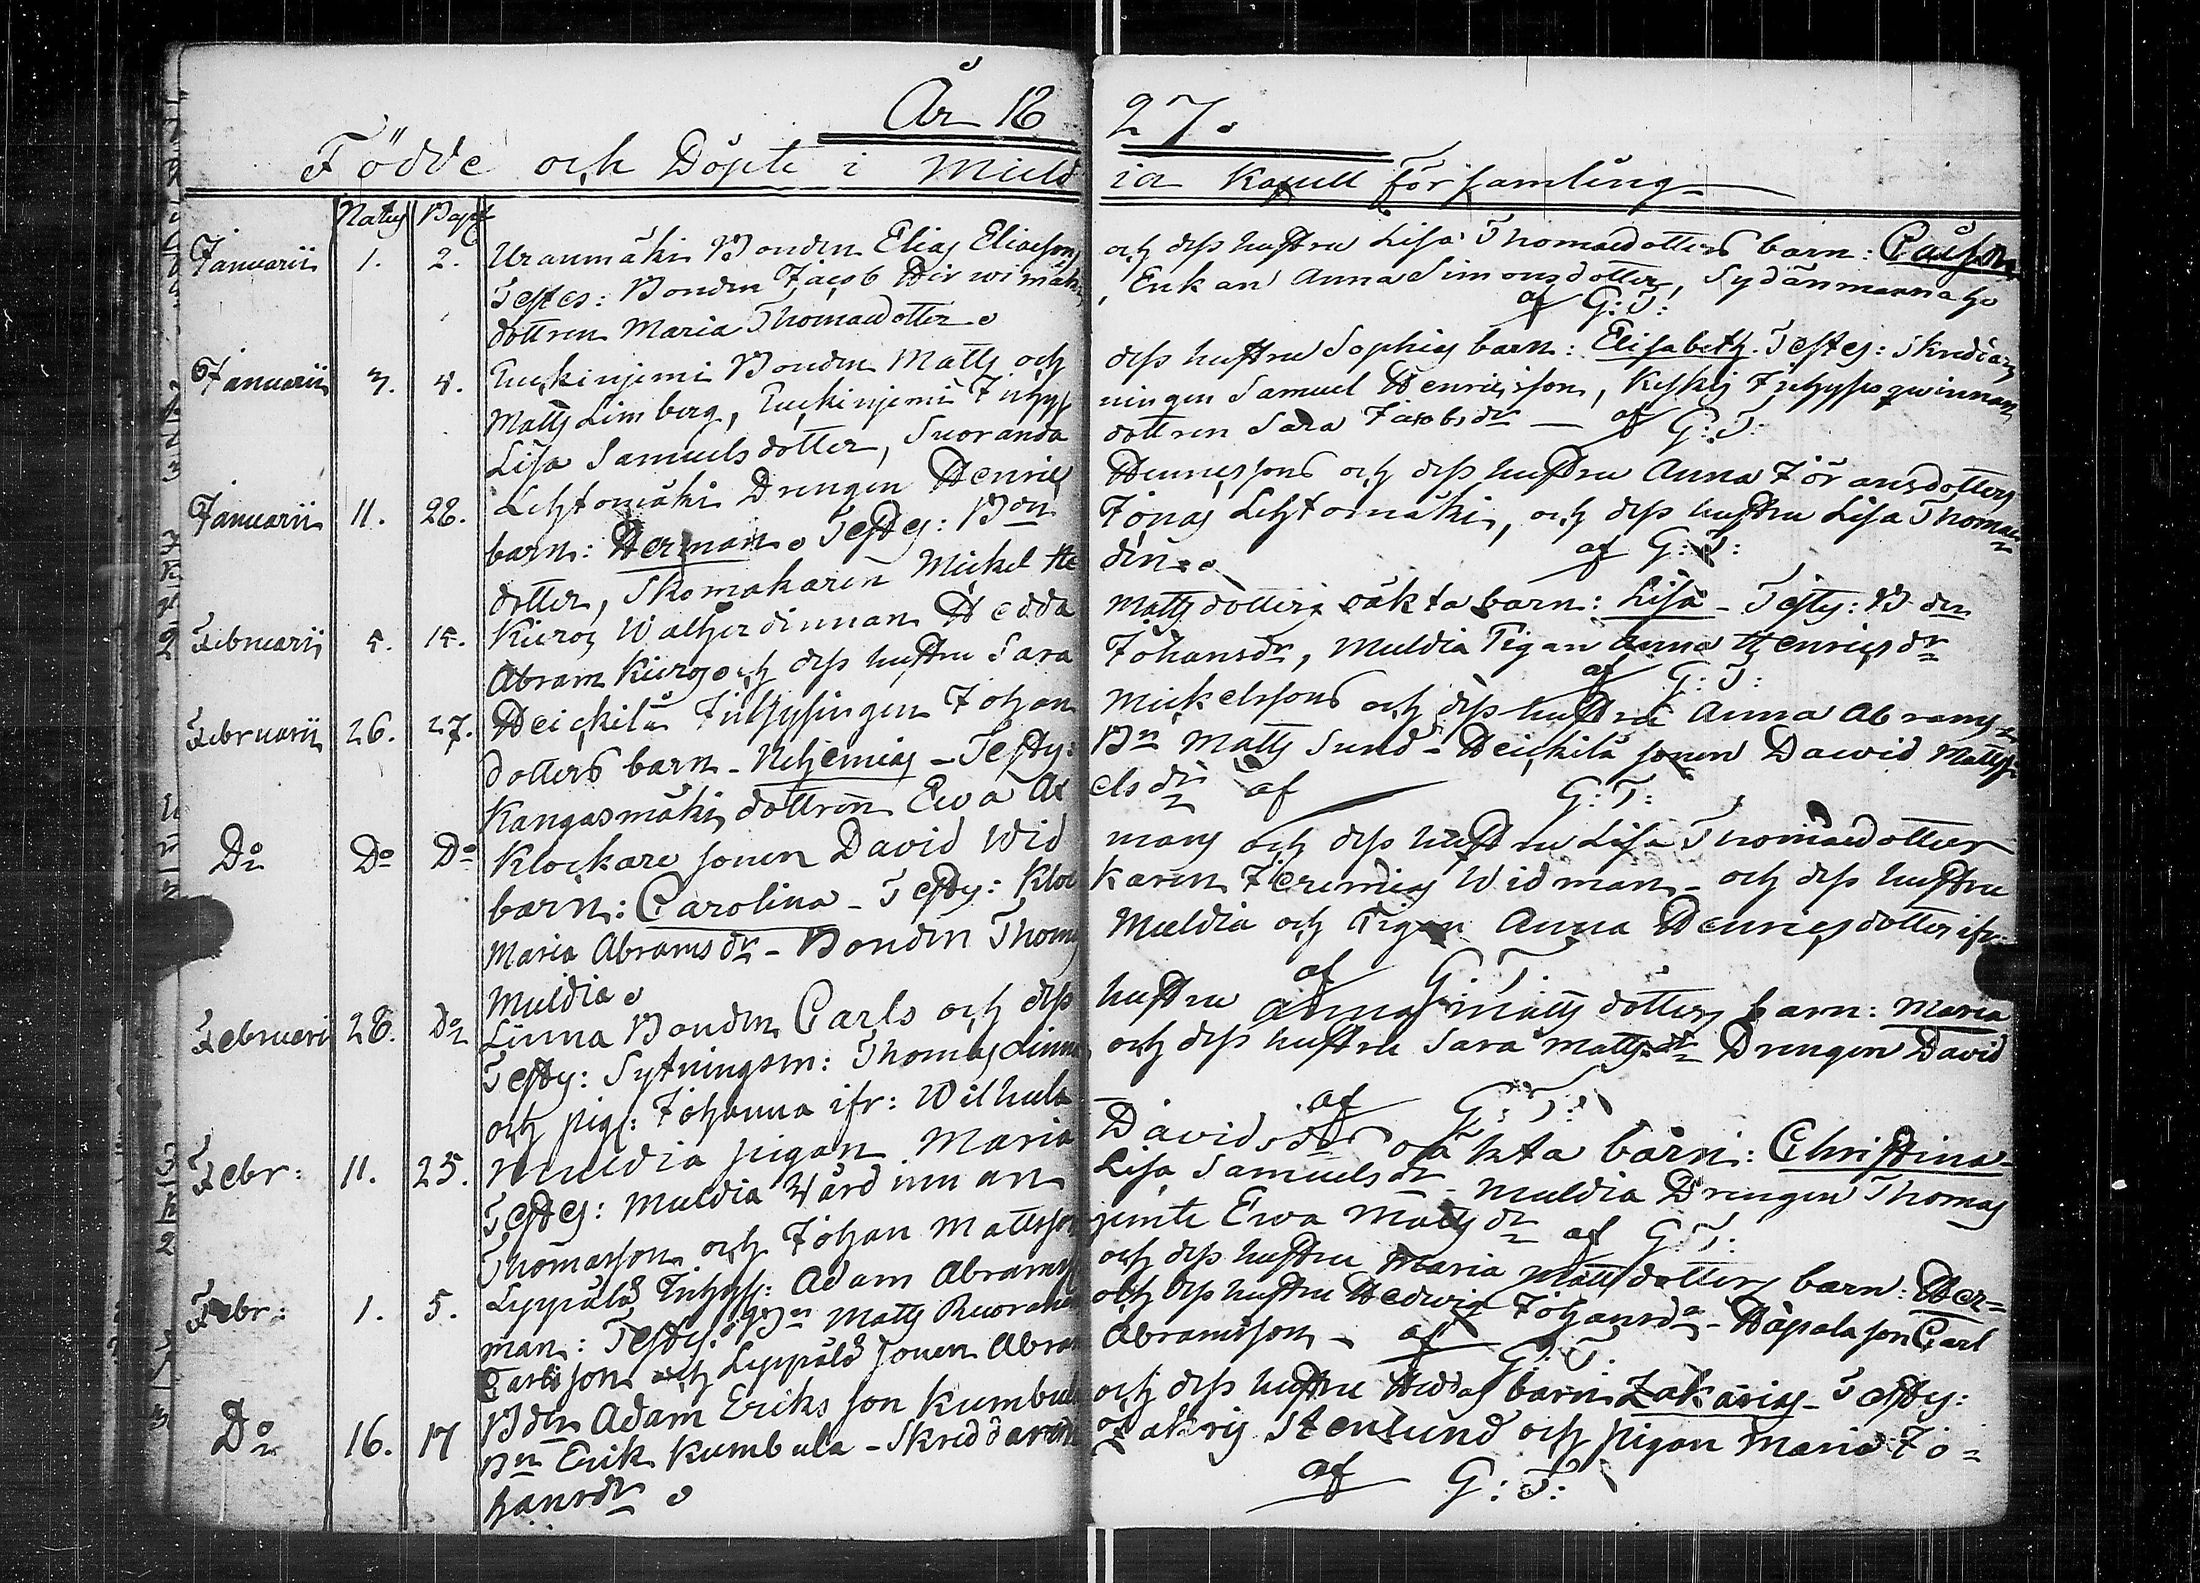 År 18 27.
Födde och Döpte i Muld ia Kapell församling
Natus Bapt
Januarii 1. 2. Uranmäki Bonden Elias Eliassons och dess hustru Lisa Thomasdotters barn:
Testes: Bonden Jacob Hirwimäki, Enkan Anna Simonsdotter, Sydänmanna
dottren Maria Thomasdotter. af G: T:
Januarii 3. 4. Bonden Matts och dess hustru Sophias barn: Elisabeth. Testes:
Matts Limberg, ningen Samuel Henricsson, Keskis Inhysesqwinnan
Lisa Samuelsdotter, Suoranda dottren Sara Jacobsdr — af G: T:
Januarii 11. 28. Lehtomäki Drengen Henric Hennessons och dess hustru Anna Jöransdotters
barn: Herman. Testes: Bdn Jonas Lehtomäki, och dess hustru Lisa Thomas
dotter, Skomakaren Mickel He din. af G: T:
Februarii 5. 15. Kuros Walherdinnan Hedda Mattsdotters oäkta barn: Lisa - Testes: Bdn
Abram Kuros och dess hustru Sara Johansdr, Muldia Pigan Anna Henricsdr
af G: T:
Februarii 26. 27. Heickilä Inhysingen Johan Mickelssons och dess hustru Anna Abrams
dotters barn - Nehemias - Testes: Bn Matts Sund - Heickilä sonen Dawid Matts
Kangasmäki dottren Ewa elsdr af G: T:
Do Do Do Klockare sonen David Wid mans och dess hustru Lisa Thomasdotters
barn: Carolina - Testes: Kloc karen Jeremias Widman - och dess hustru
Maria Abramsdr - Bonden Thomas Muldia och Pigan Anna Hennesdotter ifr:
Muldia. af G: T:
Februari 28. Do Linna Bonden Carls och dess hustru Anna Mattsdotters barn: Maria
Testes: Sytningsm: Thomas Linna och dess hustru Sara Mattsdr Drengen David
och pig: Johanna ifr: Wilhula af G: T:
Febr: 11. 25. Muldia pigan Maria Davidsdrs oäkta barn: Christina -
Testes: Muldia Wärdinnan Lisa Samuelsdr - Muldia Drengen Thomas
Thomasson och Johan Mattsson jemte Ewa Mattsdr af G: T:
Febr: 1. 5. Leppälä Inhys: Adam Abrams och dess hustru Maria Mattsdotters barn: Her=
man: Testes: Bn Matts och dess hustru Hedwig Johansdr - Hapala son Carl
Carlsson och Leppälä sonen Abram Abramsson - af G: T.
Do 16. 17 Bdn Adam Eriksson Kumbula och dess hustru Heddas barn Zakarias - Testes:
Bn Erik Kumbula - Skreddaren Zakris Stenlund och pigan Maria Jo=
hansdr. af G: T: